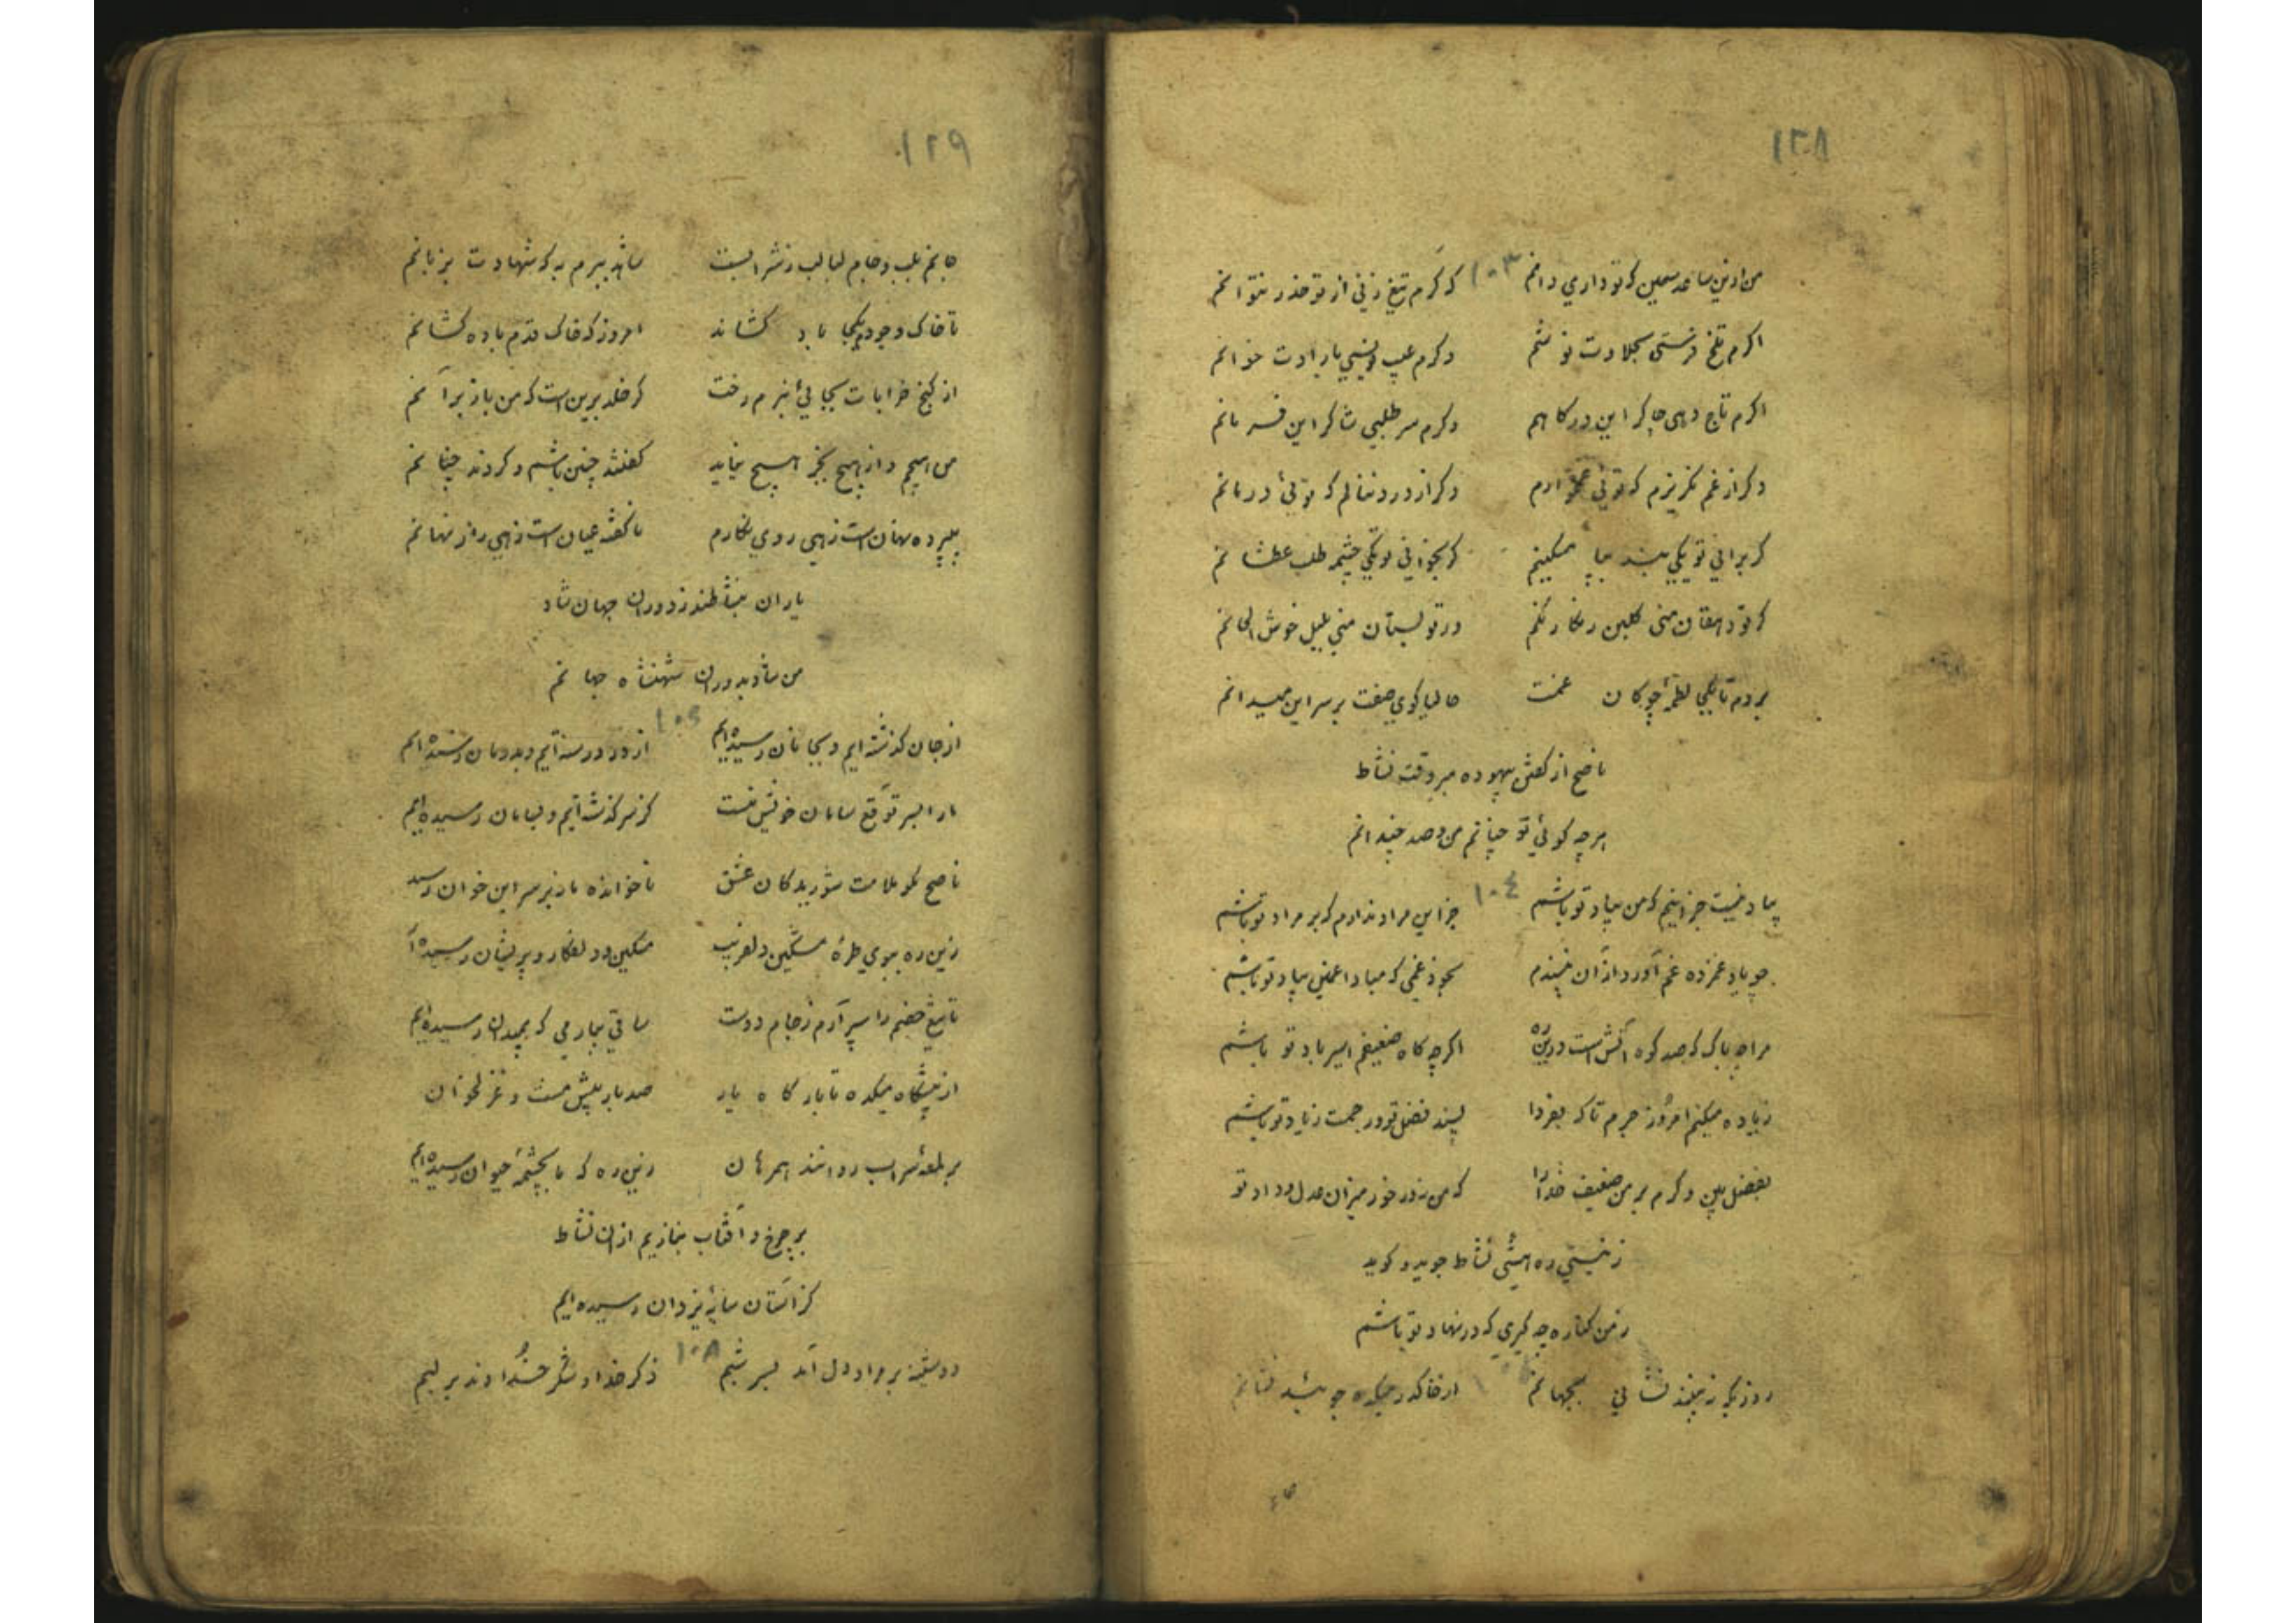 ۱۲۸
من از این ساعد سیمین که تو داری دانم ۱۰۳ که گرم تیغ زنی از تو حذر نتوانم
اگرم تلخ فرستی بحلاوت نوشم وگرم عیب نویسی بارادت خوانم
اگرم تاج دهی چاکر این درگاهم وگرم سر طلبی شاکر این فرمانم
دگر از غم نگریزم که توئی غمخوارم دگر از درد ننالم که توئی درمانم
گر برانی تو یکی بنده بی‌اپ مسکینم گر بخوانی تو یکی چشمه طلب عطشانم
گر تو دهقان منی گلبن رنگارنگم ور تو بستان منی بلبل خوش الحانم
بردم تا یکی لطمه چوگان غمت حالیا گوی صفت بر سر این میدانم
ناصح از گفتن بیهوده مبر وقت نشاط
هر چه گوئی تو چنانم من و صد چندانم
بیاد نیست جز اینم که من بیاد تو باشم ۱۰٤ جز این مراد ندارم که بر مراد تو باشم
چو یاد غمزده غم آورد از آن نپسندم بخود غمی که مبادا غمین بیاد تو باشم
مرا چه باک که صد کوه آتش است درین ره اگرچه کاه ضعیفم اسیر باد تو باشم
زیاده میکنم امروز جرم تا که بفردا پسند فضل تو و رحمت زیاد تو باشم
بفضل بین و کرم بر من ضعیف خدا را که من نه در خور میزان عدل و داد تو
ز نیستی ره هستی نشاط جوید و گوید
ز من کناره چه گیری که در نهاد تو باشم
روزیکه نبینند نشانی بجهانم از خاک در میکده جویید نشانم
۱۲۹
جانم بلب و جام لبالب ز شرابست شاهد ببرم به که شهادت بزبانم
تا خاک وجودم بکجا باد کشاند امروز که خاک قدم باده کشانم
از کنج خرابات بجایی نبرم رخت گر خلد برین است که من باز برآنم
من هیچم و از هیچ بجز هیچ نیاید گفتند چنین باشم و کردند چنانم
بپرده نهان است زهی روی نگارم ناگفته عیان است زهی راز نهانم
یاران بنشاطند ز دوران جهان شاد
من شاد بدوران شهنشاه جهانم
از جان گذشته‌ایم و بجانان رسیده‌ایم از درد رسته‌ایم و بدرمان رسیده‌ایم
ما را بسر توقع سامان خویش نیست کز سر گذشته‌ایم و بسامان رسیده‌ایم
ناصح مگو ملامت شوریدگان عشق ناخوانده ما نه بر سر این خوان رسید
زین ره ببوی طره مشکین دلفریب مسکین و دلفگار و پریشان رسیده‌ا
تا تیغ خصم را سپر آرم ز جام دوست ساقی بیار می که بمیدان رسیده‌ایم
از پیشگاه میکده تا بارگاه یار صد بار بیش مست و غزلخوان
بر لمعهٔ سراب روانند همرهان زین ره که ما بچشمهٔ حیوان رسیده‌ایم
بر چرخ و آفتاب بنازیم از آن نشاط
کز آستان سایهٔ یزدان رسیده‌ایم
دوشینه بر مراد دل آمد بسر شبم ۱۰۸ ذکر خدا و شکر خداوند بر لبم